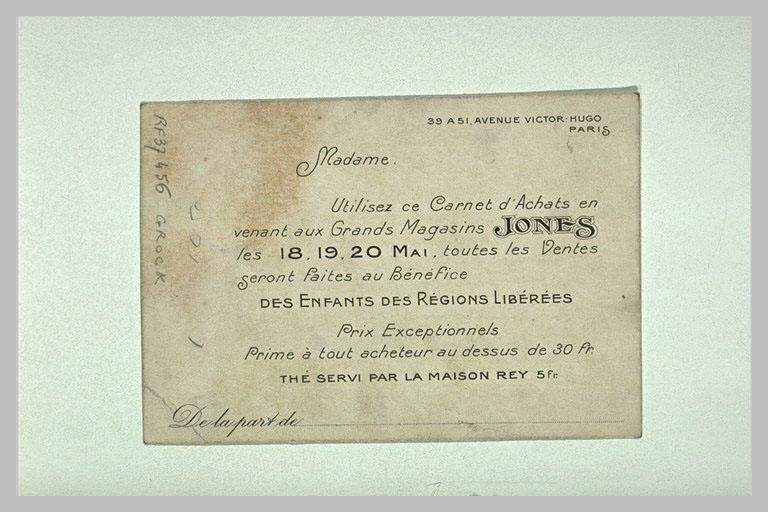 39 A 51, AVENUE VICTOR-HUGO
PARIS
Madame.
Utilisez ce Carnet d'Achats en
venant aux Grands Magasins JONES
les 18, 19, 20 MAI, toutes les Ventes
seront faites au Bénéfice
DES ENFANTS DES RÉGIONS LIBÉRÉES
Prix Exceptionnels
Prime à tout acheteur au dessus de 30 Fr.
THÉ SERVI PAR LA MAISON REY 5 Fr.
De la part de
RF37456 GROCK